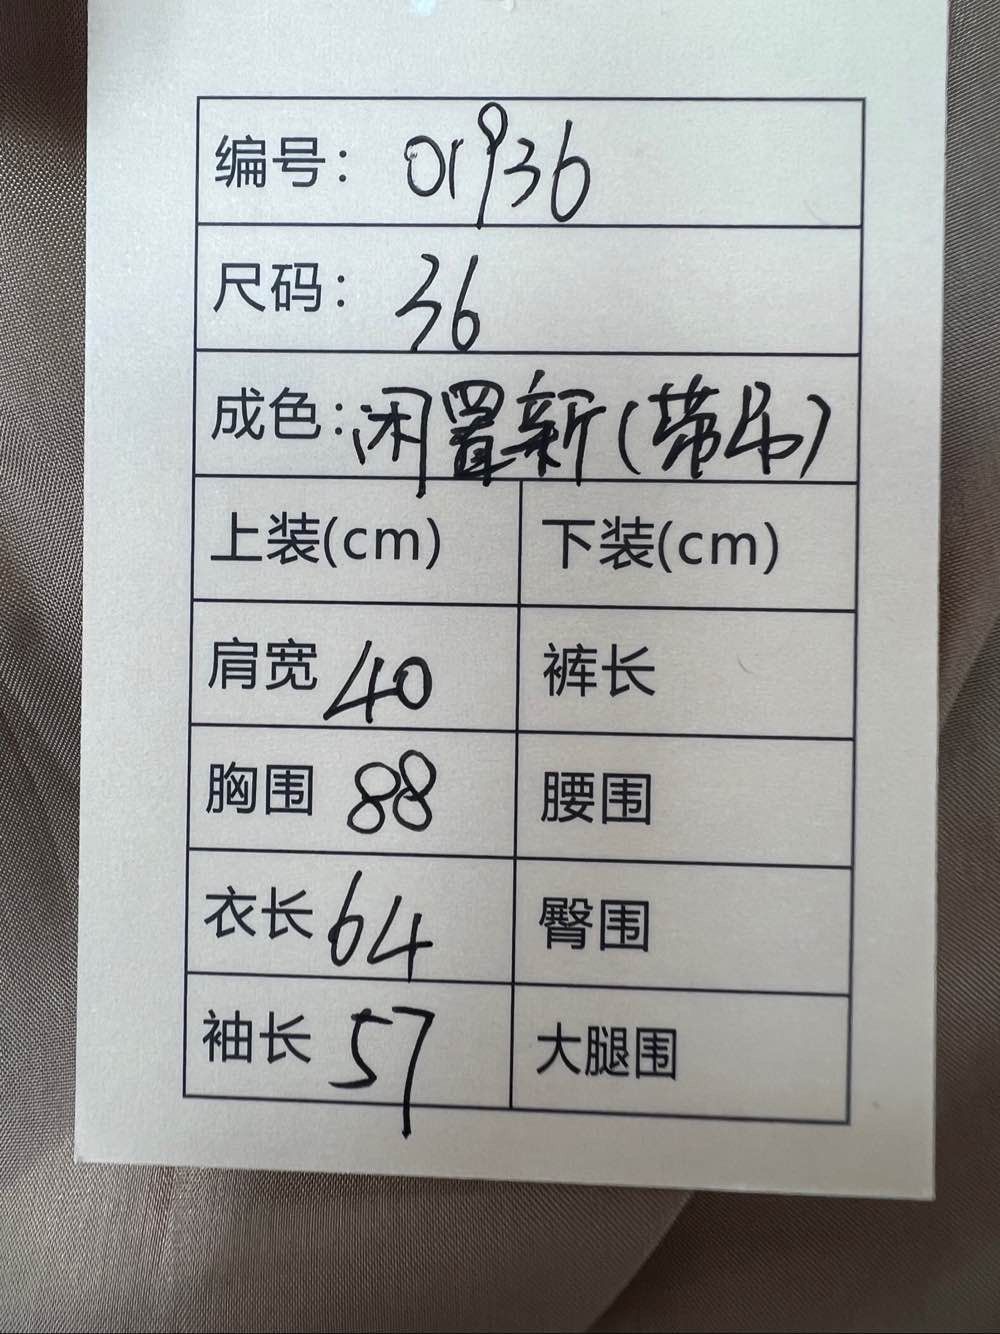 编号： 01936
尺码： 36
成色：闲置新(带吊)
上装(cm) 下装(cm)
肩宽 40 裤长
胸围 88 腰围
衣长 64 臀围
袖长 57 大腿围